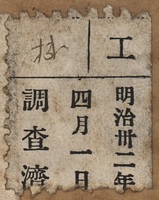 工
明治卅二年
四月一日
調査濟